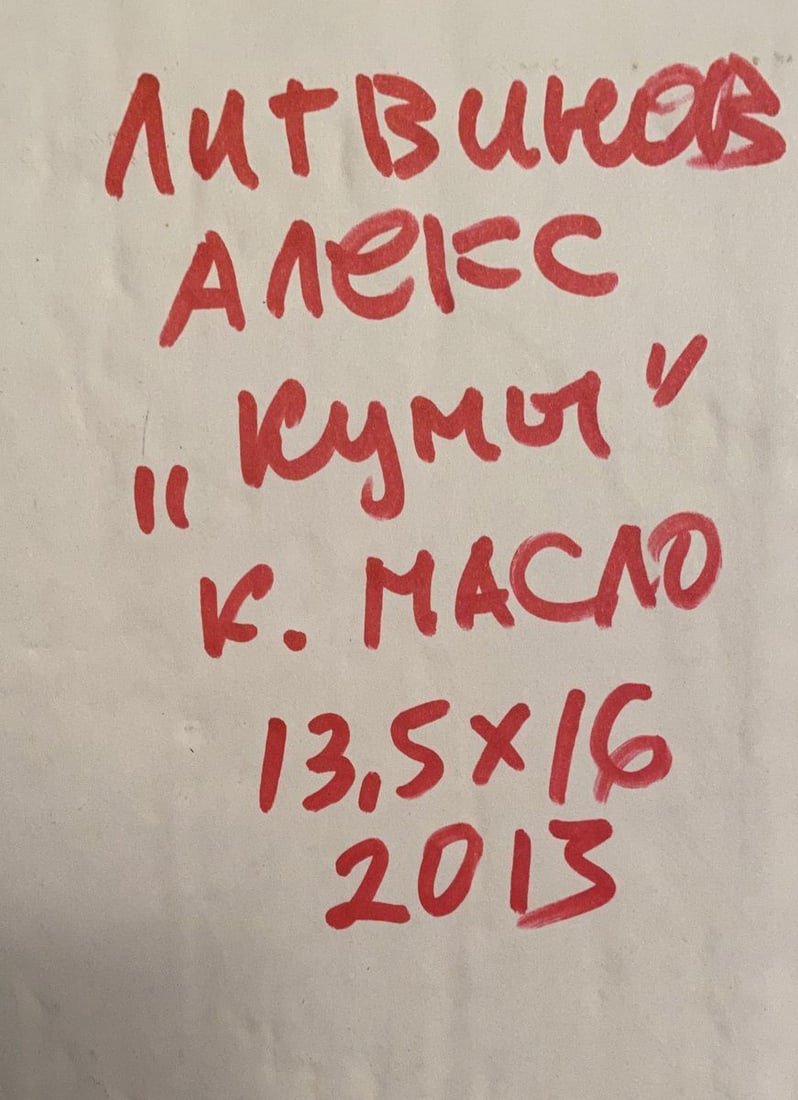 Литвинов
Алекс
"Кумы"
К. МАСЛО
13,5×16
2013